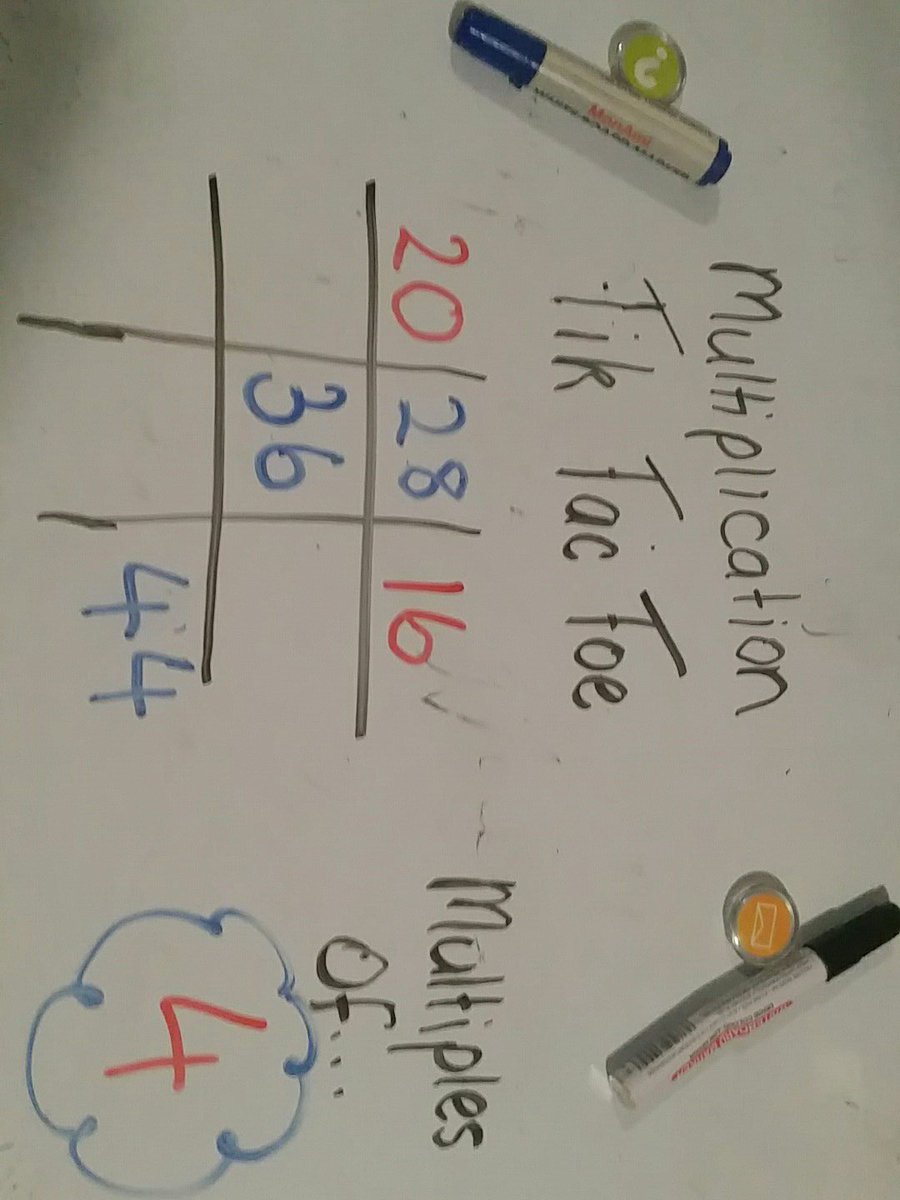 Multiplication
Tik Tac Toe
20 28 16
36
44
Multiples
Of...
4
MonAmi